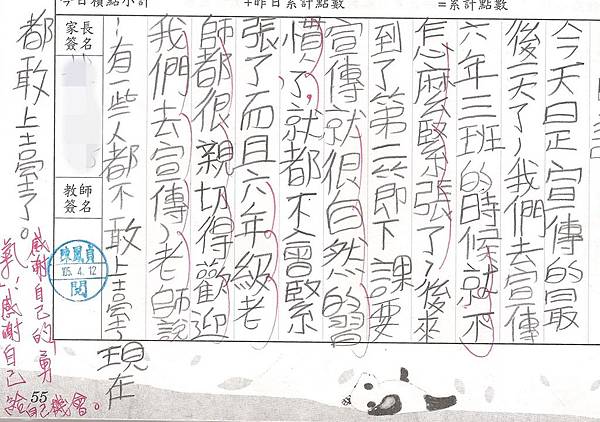 今日積點小計
+昨日累計點數
=累計點數
今天是宣傳的最
後一天了,我們去宣傳
六年三班的時候就不
怎麼緊張了,後來
到了第二節下課要
宣傳就很自然的習
慣了,就都不會緊
張了而且六年級老
師都很親切得歡迎
我們去宣傳,老師說
有一些人都不敢上臺了現在
都敢上臺了。
家長簽名
教師簽名
陳鳳貞
105.4.12
閱
感謝自己的勇
氣!感謝自己
給自己機會。
55